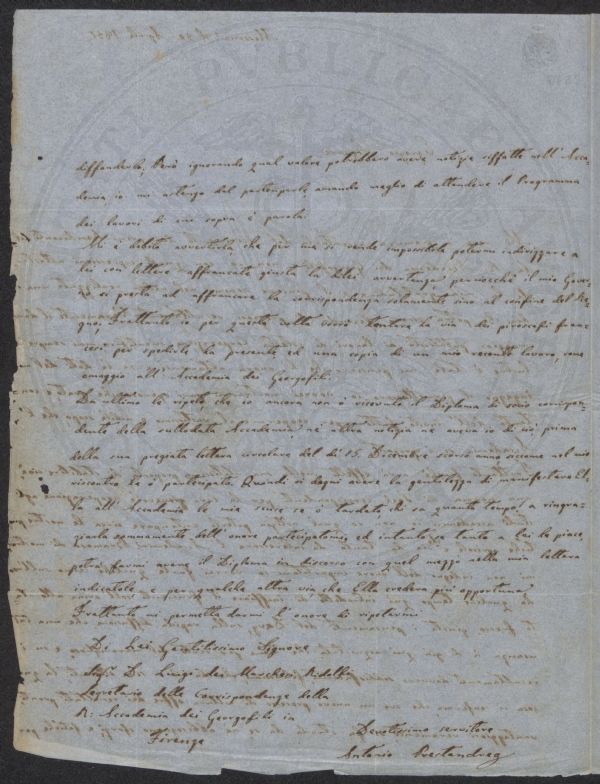 diffonderlo. Però ignorando qual valore potrebbero avere notizie siffatte nell' Acca-
demia io mi astengo dal parteciparle, amando meglio di attendere il Programma
dei lavori di cui sopra è parola.
Mi è debito avvertirla, che per me si rende impossibile potermi indirizzare a
lei con lettere affrancate giusta la di lei avvertenza, perocchè il mio Gover-
no si presta ad affrancare la corrispondenza solamente sino al confine del Re-
gno. Frattanto io per questa volta vorrò tentare la via dei piroscafi fran-
cesi per spedirle la presente ed una copia di un mio recente lavoro, come
omaggio all' Accademia dei Georgofili.
Da ultimo le ripeto, che io ancora non ò ricevuto il Diploma di socio corrispon-
dente della sullodata Accademia, nè altra notizia ne aveva io di ciò prima
della sua pregiata lettera circolare del dì 15. Dicembre scorso anno siccome nel mio
riscontro Le ò partecipato. Quindi si degni avere la gentilezza di manifestare El-
la all' Accademia le mie scuse se ò tardato chi sa quanto tempo a ringra-
ziarla sommamente dell' onore partecipatomi, ed intanto sa tanto a Lei le piace,
potrà farmi avere il Diploma in discorso con quel mezzo nella mia lettera
indicatole, e per qualche altra via che Ella crederà più opportuna.
Frattanto mi permetta darmi l' onore di ripetermi
Di Lei Gentilissimo Signore
Sig. Dr. Luigi dei Marchesi Ridolfi
Segretario delle Corrispondenze della
R. Accademia dei Georgofili in
Firenze
Devotissimo servitore
Antonio Prestandrea